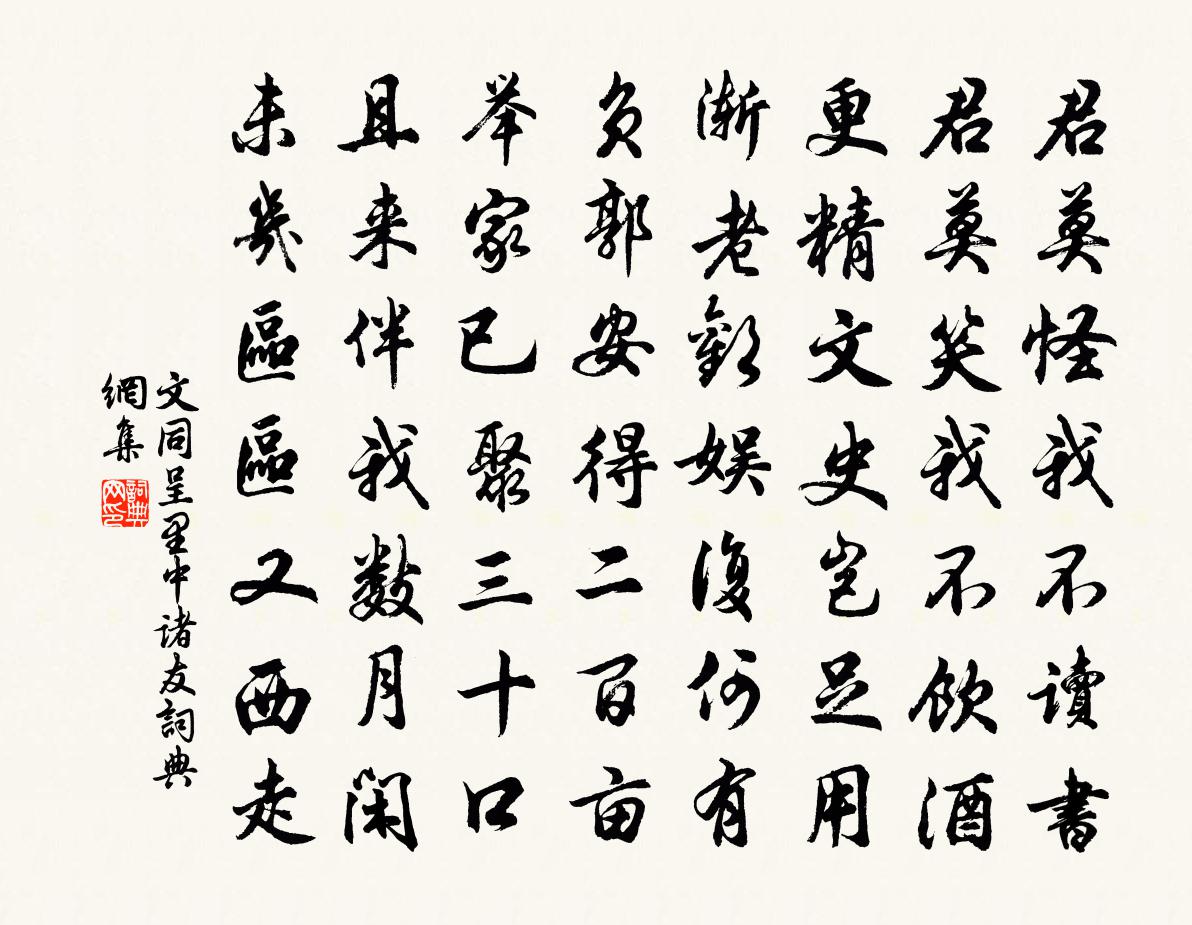 君莫怪我不讀書
君莫笑我不飲酒
更精文史岂足用
漸老歡娱復何有
負郭安得二百亩
举家已聚三十口
且来伴我數月閑
未幾區區又西走
文同呈里中诸友詞典
網集
詞典網印